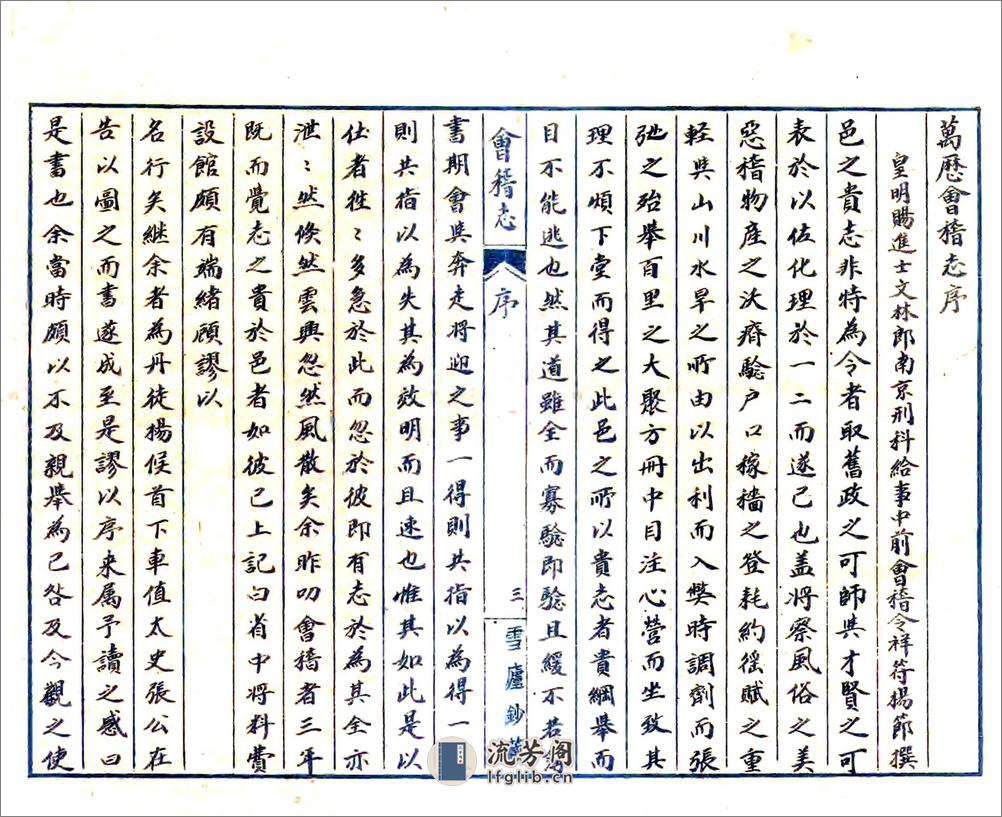 萬歷會稽志序
皇明賜進士文林郎南京刑科給事中前會稽令祥符楊節撰
邑之貴志非特為令者取舊政之可師與才賢之可
表於以佐化理於一二而遂已也盖將察風俗之美
惡稽物產之沃瘠驗户口稼穡之登耗約徭賦之重
軽與山川水旱之所由以出利而入弊時調劑而張
弛之殆舉百里之大聚方冊中目注心營而坐致其
理不煩下堂而得之此邑之所以貴志者貴綱舉而
目不能逃也然其道雖全而寡驗即驗且緩不若
會稽志
序
三
雪廬鈔
書期會與奔走將迎之事一得則共指以為得一
則共指以為失其為效明而且速也惟其如此是以
仕者往〻多急於此而忽於彼即有志於為其全亦
泄〻然倏然雲興忽然風散矣余昨叨會稽者三年
既而覺志之貴於邑者如彼已上記白省中將料費
設館頗有端緒顧謬以
名行矣継余者為丹徒楊候首下車值太史張公在
告以圖之而書遂成至是謬以序来属予讀之感曰
是書也余當時頗以不及親舉為已咎及今觀之使
流芳阁
lfglib.cn